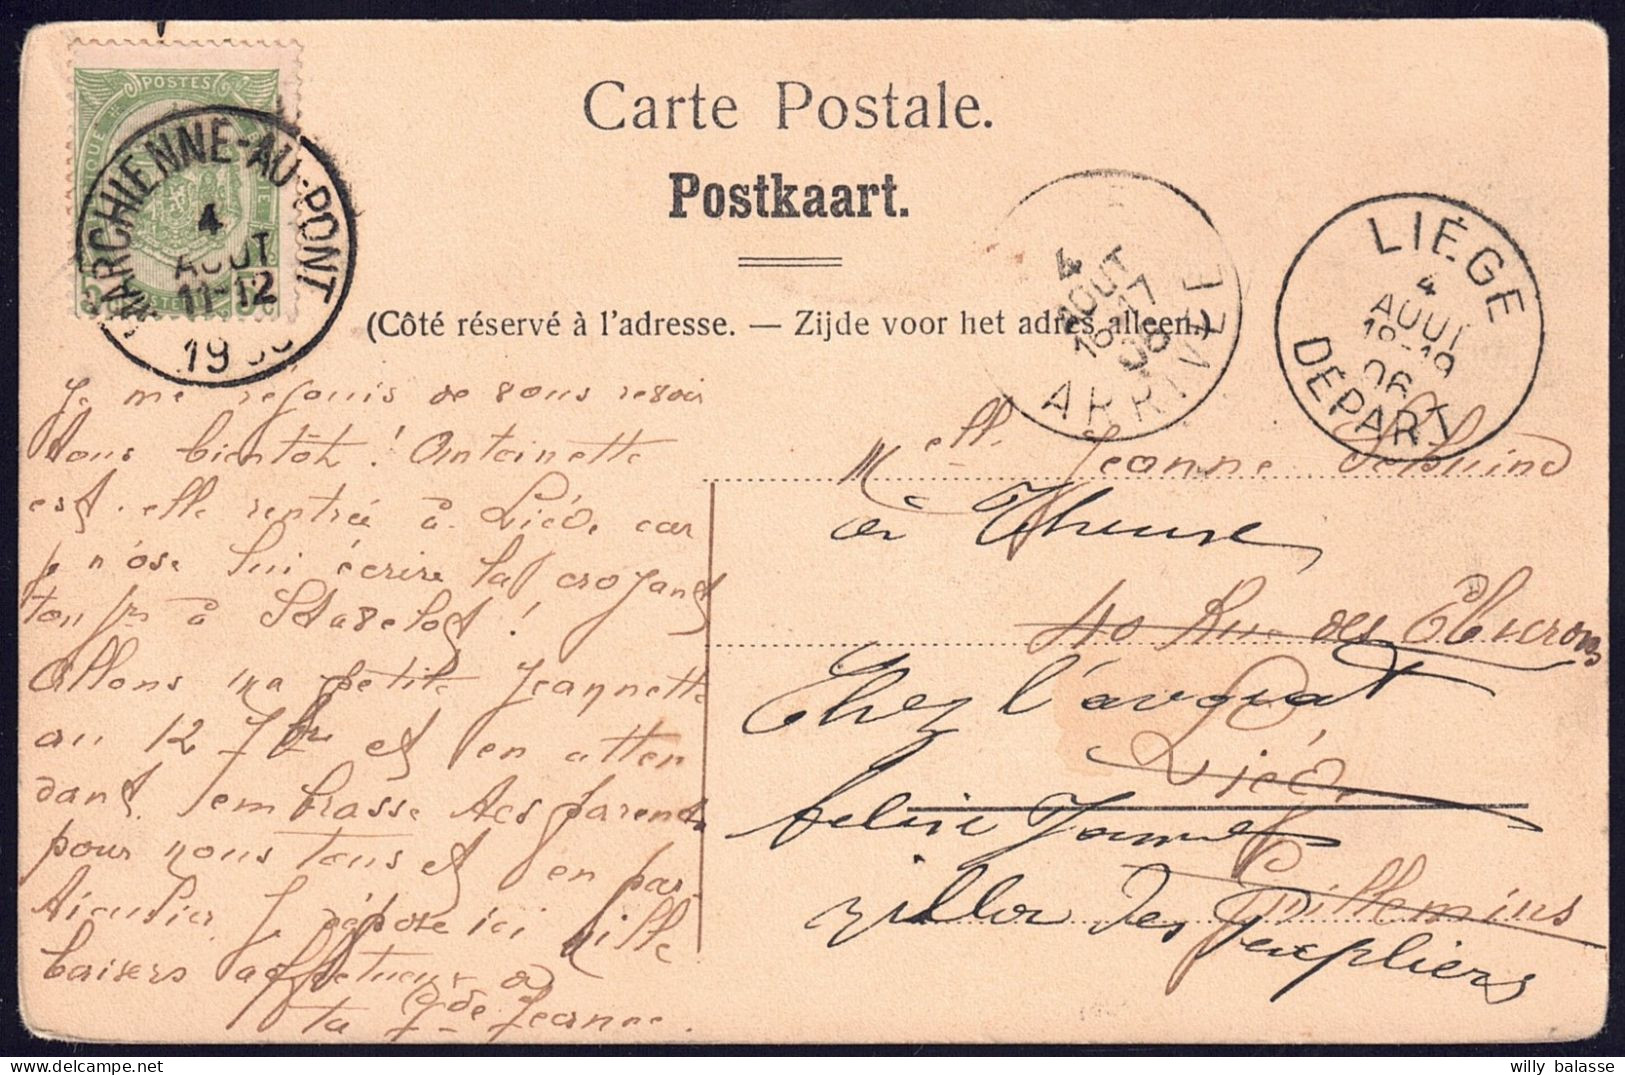 Carte Postale.
Postkaart.
(Côté réservé à l'adresse. — Zijde voor het adres alleen.)
POSTES
MARCHIENNE-AU-PONT
4
AOUT
11-12
19
4
AOUT
16-17
06
ARRIVEE
LIÉGE
4
AOUT
18-19
06
DÉPART
Je me rejouis de vous revoir
tous bientôt ! Antoinette
est-elle rentrée à Liége, car
je n'ose lui écrire la croyant
à Stavelot !
Allons ma petite Jeannette
au 12 7bre et en atten
dant embrasse tes parents
pour nous tous et en par
ticulier. Je dépose ici mille
baisers affectueux
ta Gde Jeanne.
Melle Jeanne
à Theux
40 Rue des Eburons
Chez l'avocat
Liége
Guillemins
villa des Peupliers
willy balasse